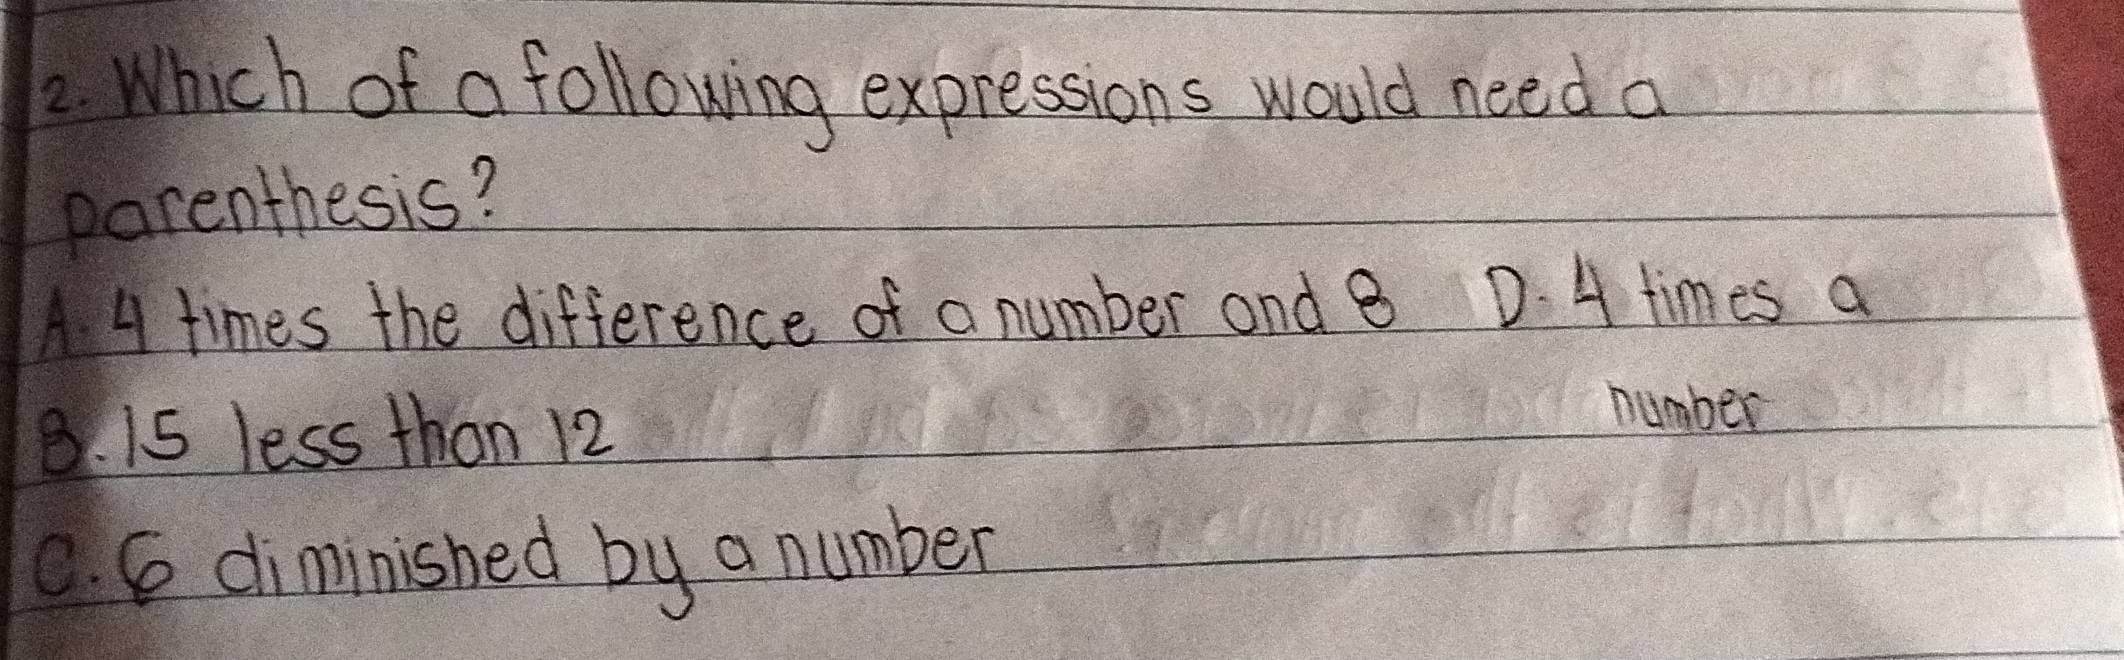 2. Which of a following expressions would need a
parenthesis?
A. 4 times the difference of a number and 8 D. 4 times a
number
B. 15 less than 12
C. 6 diminished by a number